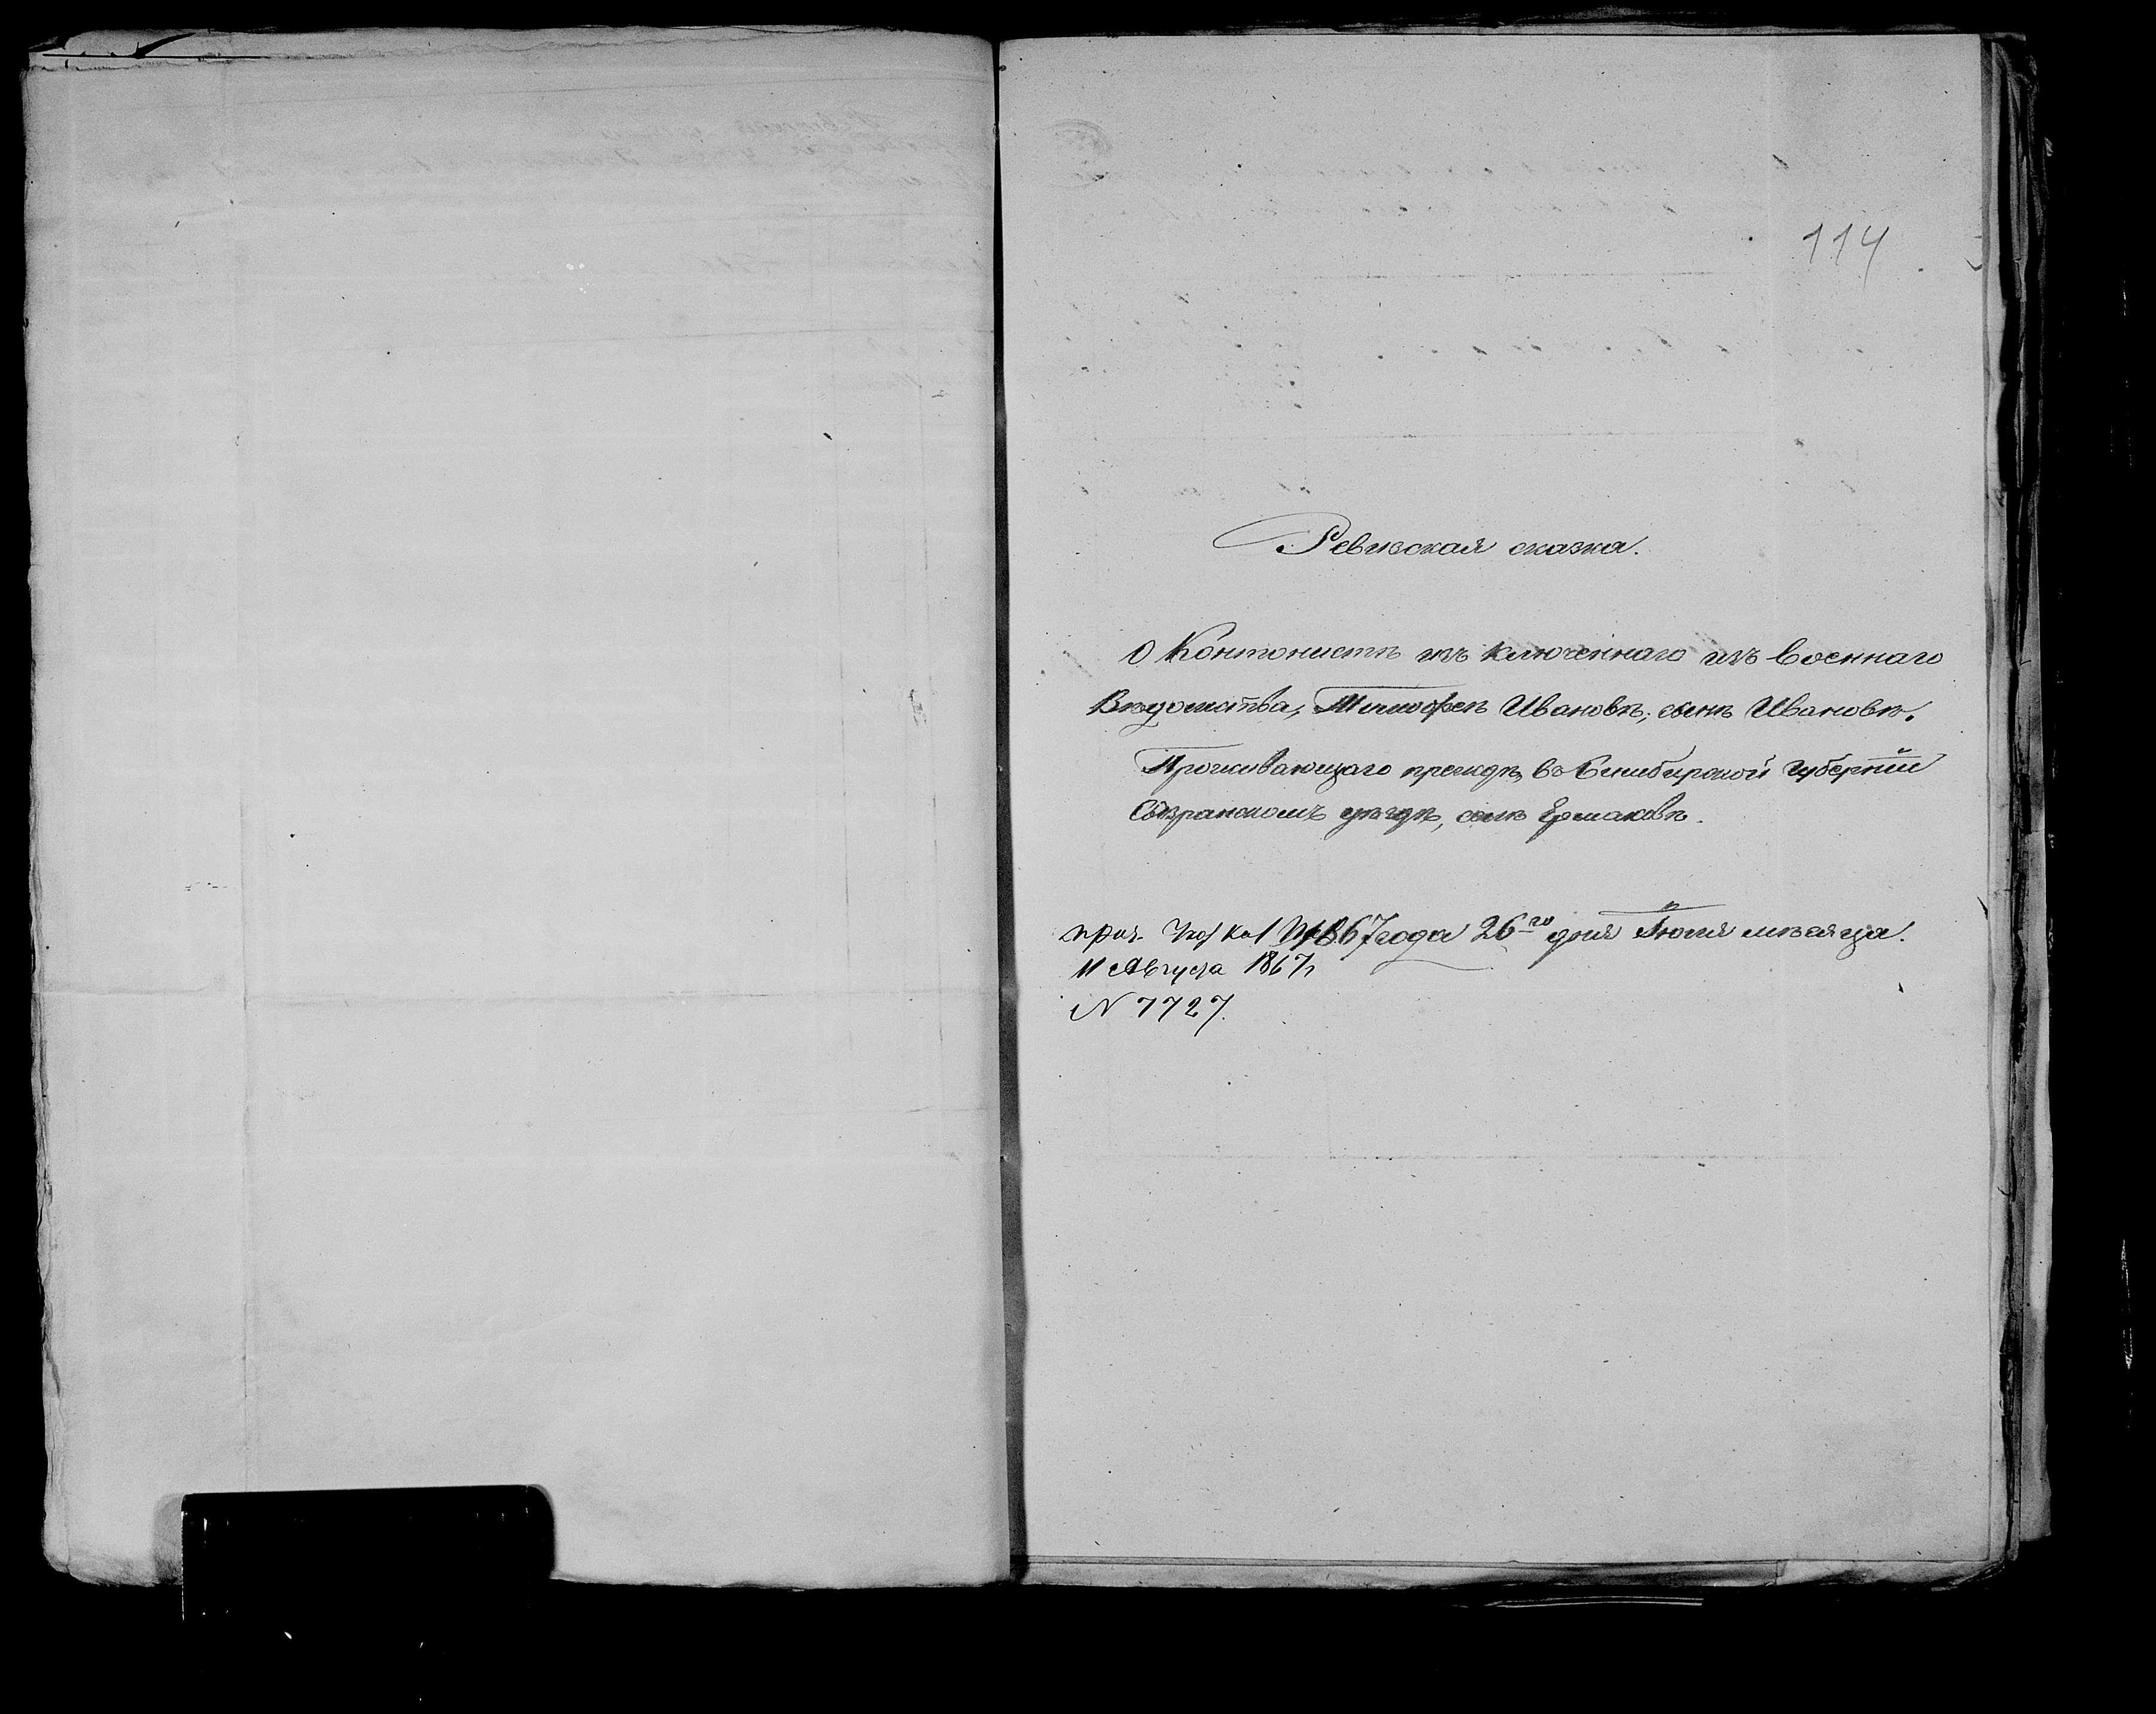 114
Ревизская сказка.
О Контонистѣ изъ ключеннаго изъ Военнаго
Вѣдомства, Тимофеѣ Ивановѣ, сынѣ Ивановѣ.
Проживающаго прежде, въ Симбирской Губерніи
Сызранскомъ уѣздѣ, селѣ Ермаковѣ.
1867 года 26го дня Іюля мѣсяца.
11 Августа 1867 г
N 7727.